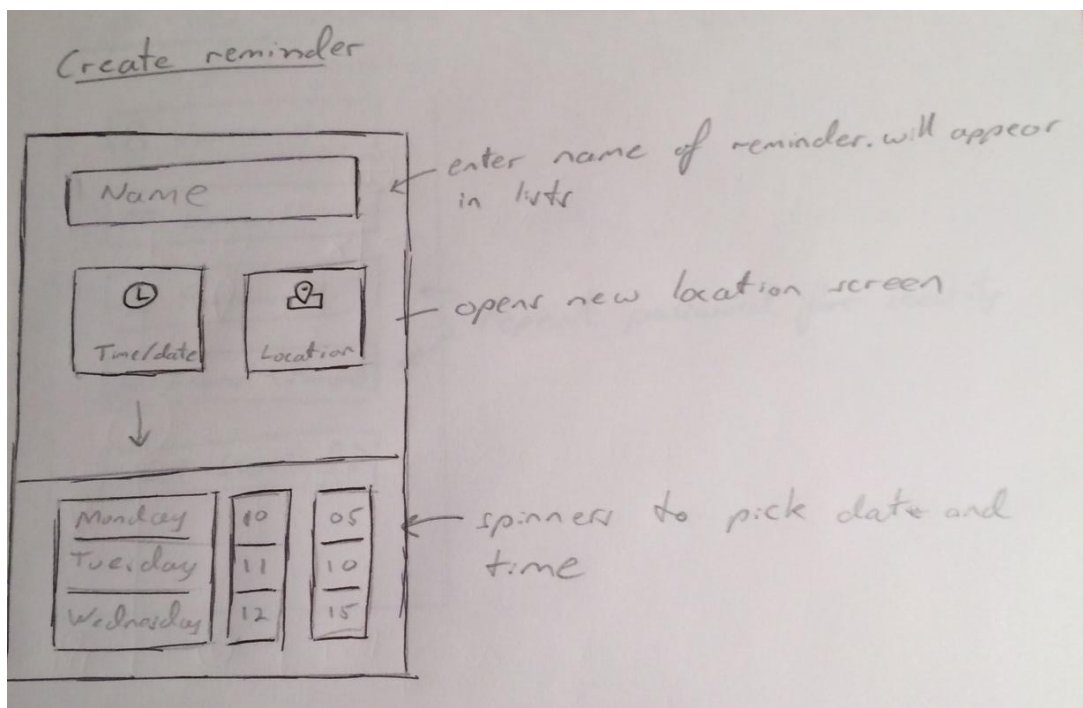 Create reminder
Name
enter name of reminder. will appear
in lists
Time/date
Location
opens new location screen
Monday
10
05
Tuesday
11
10
Wednesday
12
15
spinners to pick date and
time